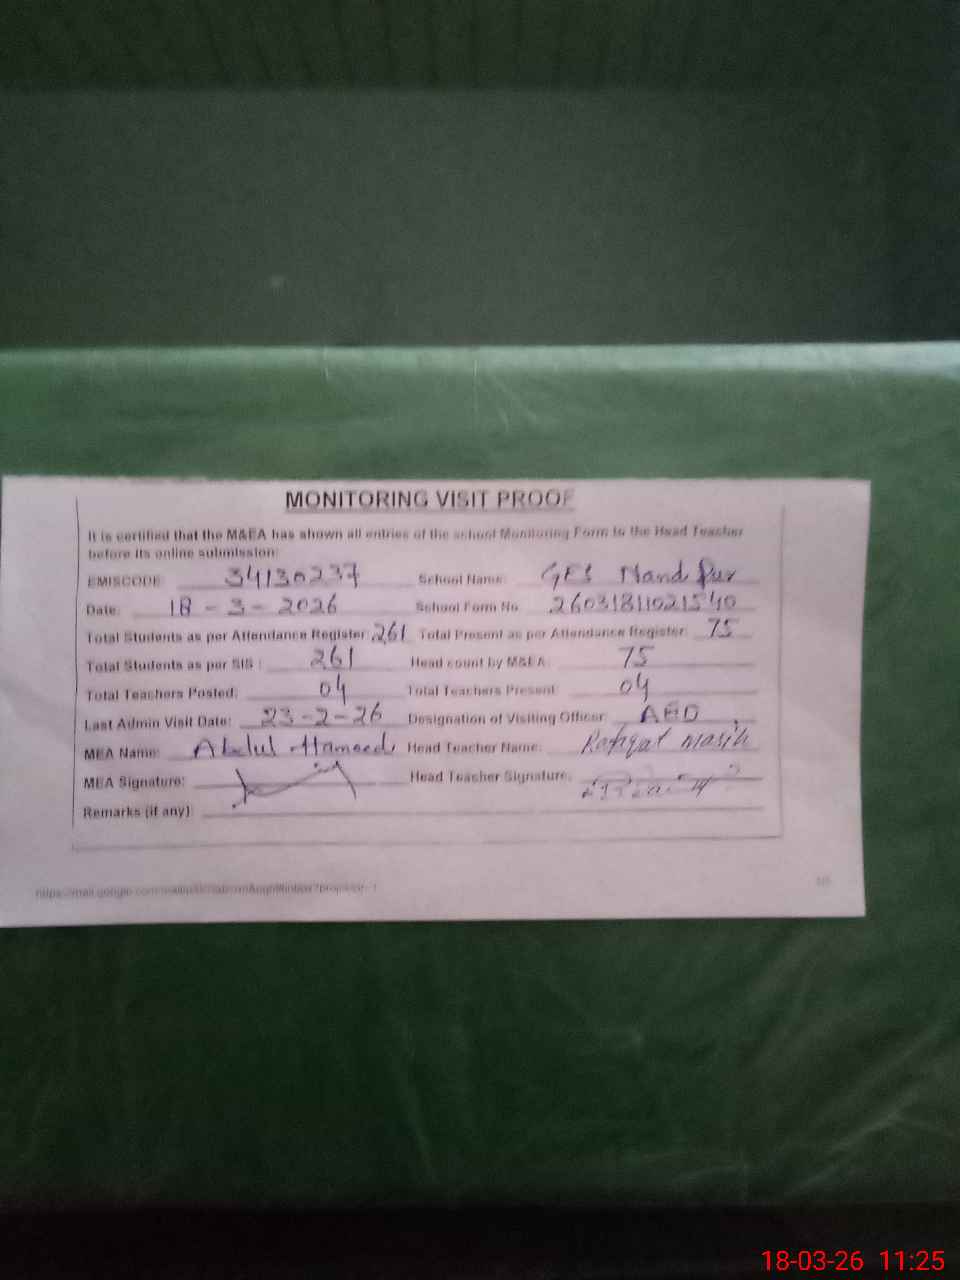 MONITORING VISIT PROOF
It is certified that the M&EA has shown all entries of the school Monitoring Form to the Head Teacher
before its online submission:
EMISCODE: 34130237 School Name: GES Nand Pur
Date: 18-3-2026 School Form No 26031811021540
Total Students as per Attendance Register: 261 Total Present as per Attendance Register: 75
Total Students as per SIS: 261 Head count by M&EA: 75
Total Teachers Posted: 04 Total Teachers Present: 04
Last Admin Visit Date: 23-2-26 Designation of Visiting Officer: AEO
MEA Name: Abdul Hameed Head Teacher Name: Rafaqat masih
MEA Signature: Head Teacher Signature:
Remarks (if any):
18-03-26 11:25